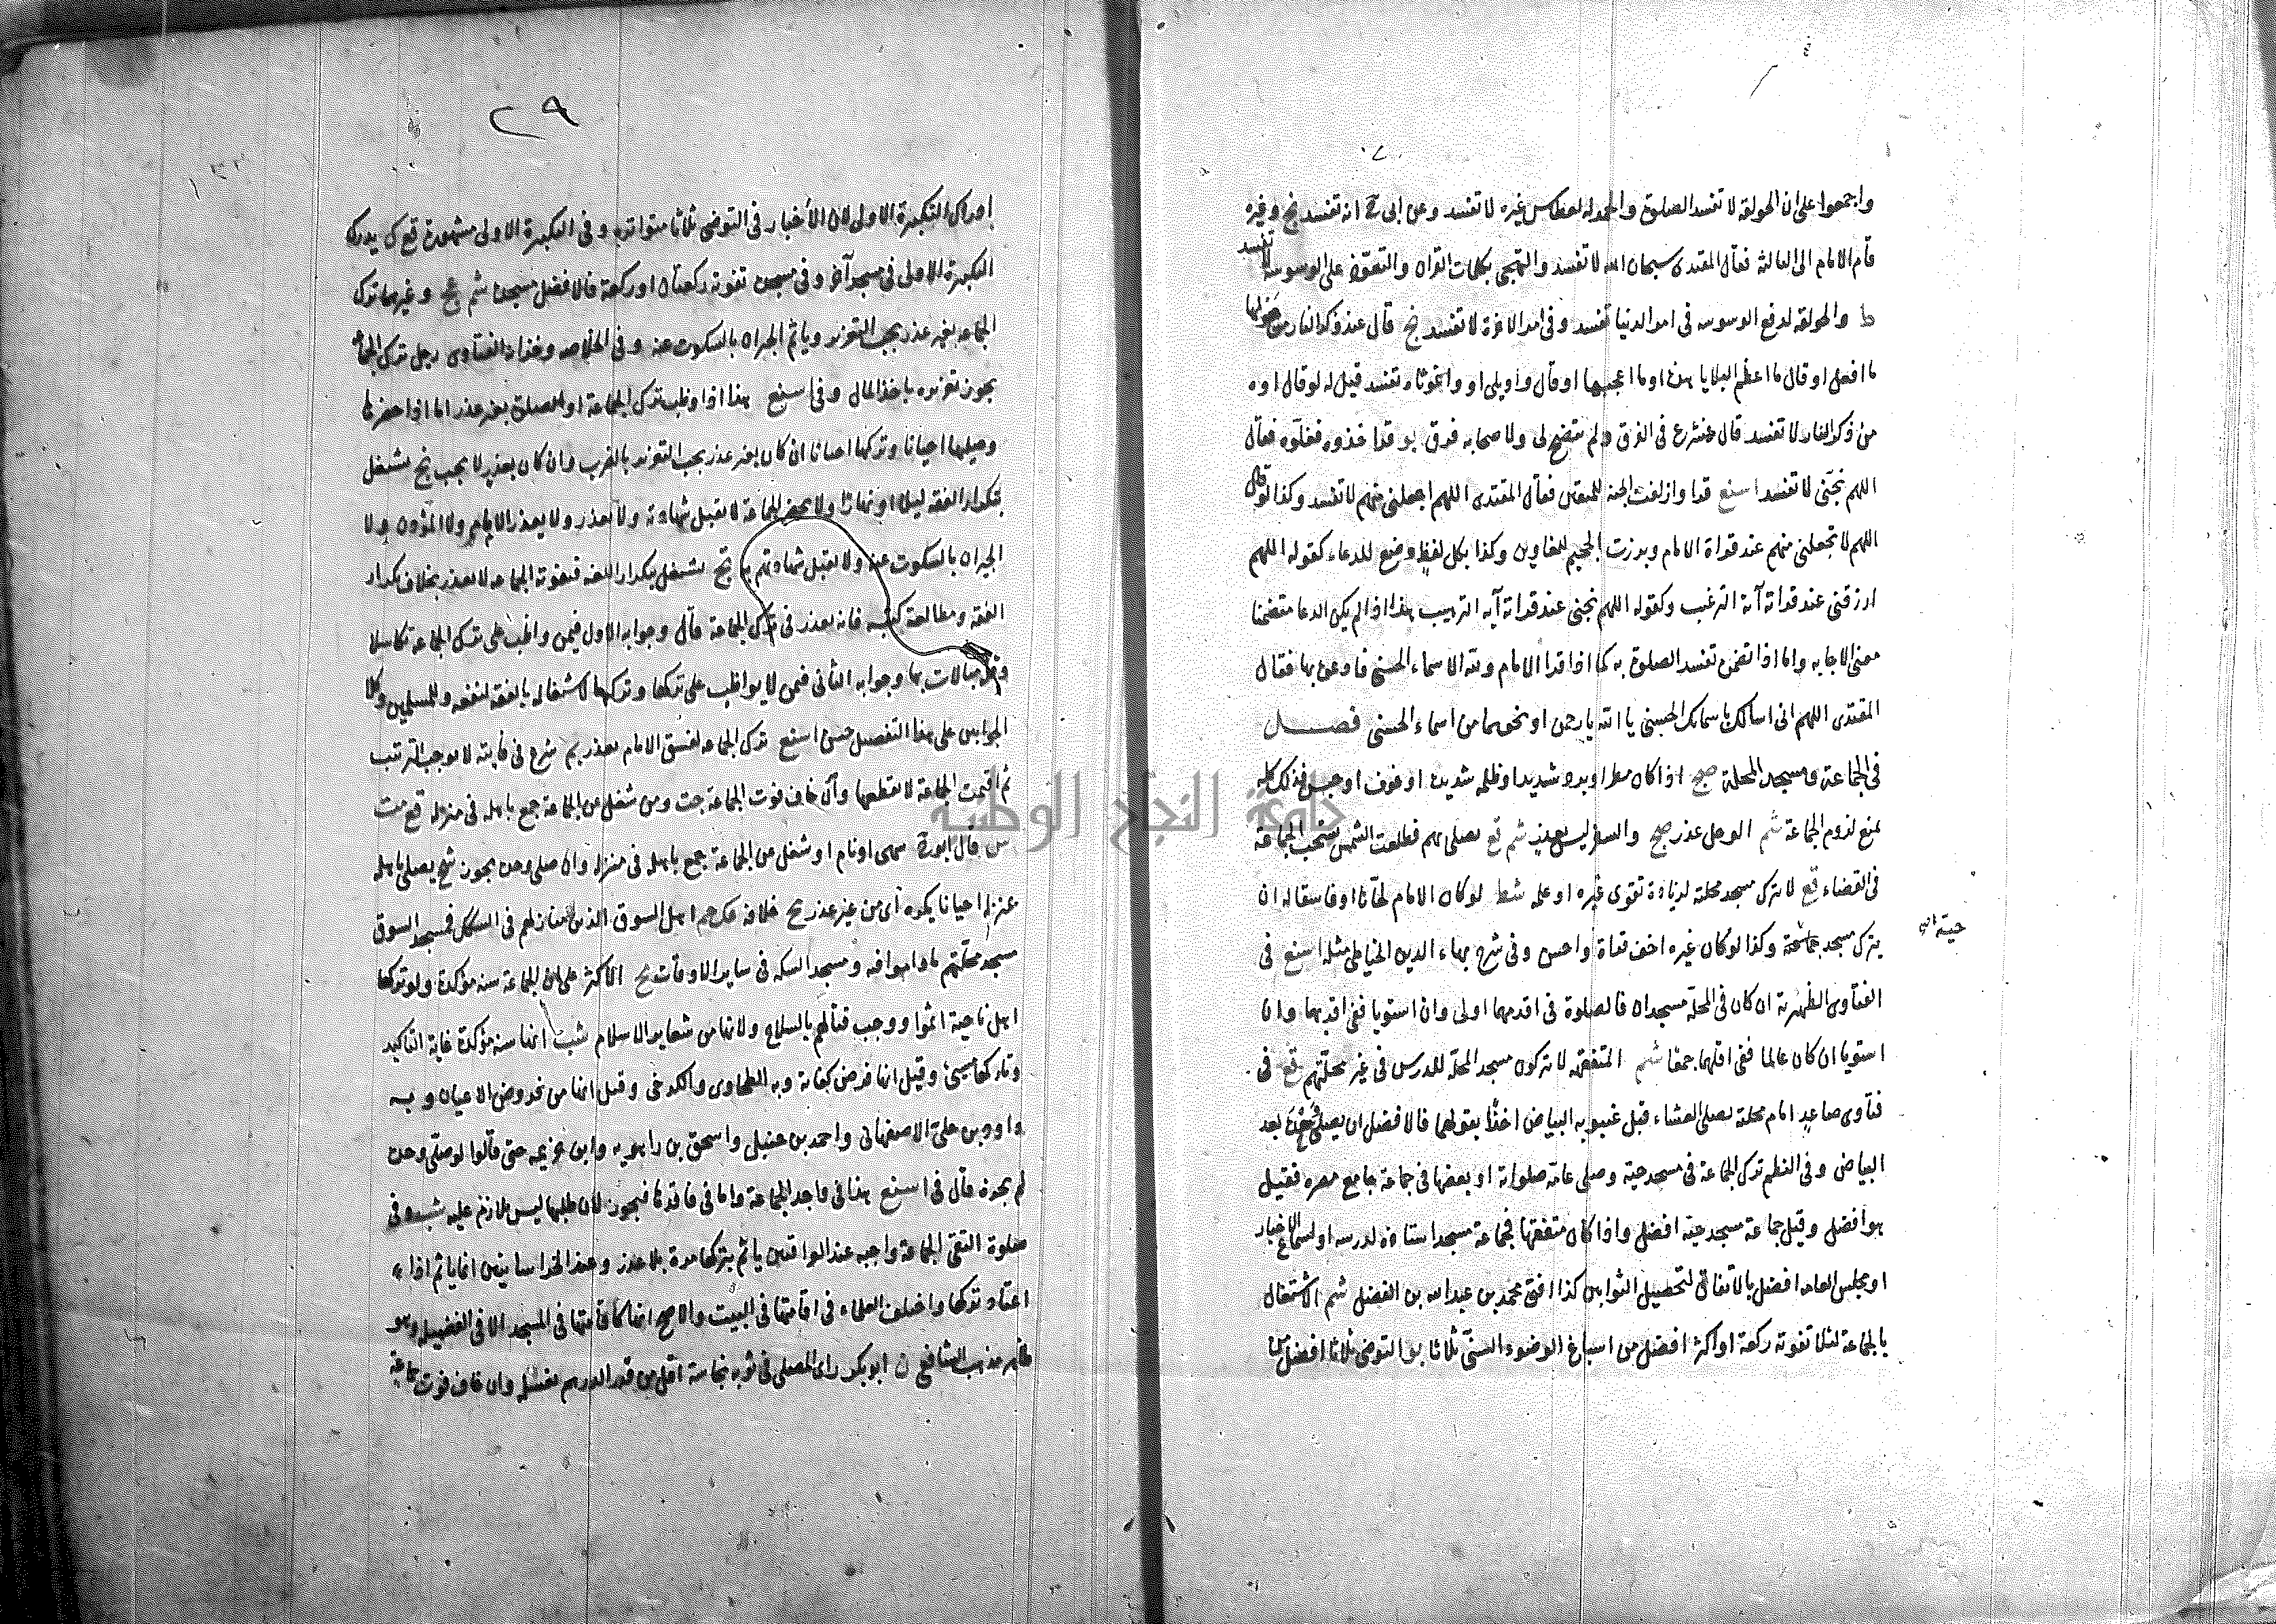 واجمعوا على ان الحولقة لا تفسد الصلوة والحمدلة لعطاس غيره لا تفسد وعن ابى ح انه تفسد نج وغيره
قام الامام الى الثالثة فقال المقتدى سبحان الله لا تفسد والتهجى بكلمات القران والتعوّذ على الوسوسة لا تفسد
ط والحولقة لدفع الوسوسه فى امور الدنيا تفسد وفى امور الاخرة لا تفسد نج قال عند ذكر النار من هولها
ما افعل او قال ما اعظم البلايا هذه او ما اعجبها او قال واويلى او واغوثاه تفسد قيل له لو قال اوه
من ذكر النار لا تفسد قال فى الفرق ولم يتضح لى ولا صحابه فرق بو قرا خذوه فغلّوه فقال
اللهم نجّنى لا تفسد اسنع قرا وازلفت الجنة للمتقين فقال المقتدى اللهم اجعلنى منهم لا تفسد وكذا لو قال
اللهم لا تجعلنى منهم عند قراة الامام وبرزت الجحيم للغاوين وكذا بكل لفظٍ وضع للدعاء كقوله اللهم
ارزقنى عند قراته آية الترغيب وكقوله اللهم نجنى عند قراته آية الترهيب هذا اذا لم يكن الدعا متضمنا
معنى الاجابه واما اذا تضمن تفسد الصلوة به كما اذا قرا الامام ولله الاسماء الحسنى فادعوه بها فقال
المقتدى اللهم انى اسالك باسمائك الحسنى يا الله يا رحمن او نحوهما من اسماء الحسنى فصل
فى الجماعة ومسجد المحلة صح اذا كان مطرا وبرد شديد او ظلمة شديده او خوف او حبس فذلك كله
يمنع لزوم الجماعة شم الوحل عذر صح والسفر ليس بعذر شم قع يصلى بهم فطلعت الشمس يستحب الجماعة
فى القضاء قع لا يترك مسجد محلته لزيادة تقوى غيره او علمه شط لو كان الامام لحّانا او فاسقا له ان
يترك مسجد جماعته وكذا لو كان غيره اخف قراة واحسن وفى شرح بهاء الدين الخياطى مثله اسنع فى
حيّه
الفتاوى الظهيرية ان كان فى المحلة مسجدان فالصلوة فى اقدمهما اولى وان استويا ففى اقربهما وان
استويا ان كان عالما ففى اقلهما جمعًا شم المتفقهة لا يتركون مسجد المحلة للدرس فى غير محلّتهم قع فى
فتاوى صاعدٍ امام محلة يصلى العشاء قبل غيبوبه البياض اخذًا بقولهما فالافضل ان يصلى وحده بعد
البياض وفى النظم ترك الجماعة فى مسجد حيّه وصلى عامة صلواته او بعضها فى جماعة جامع مصره فقيل
هو افضل وقيل جماعة مسجد حيّه افضل واذا كان متفقها فجماعة مسجد استاذه لدرسه او لسماع الاخبار
او مجلس العامه افضل بالاتفاق لتحصيل الثوابين كذا افتى محمد بن عبد الله بن الفضل شم الاشتغال
بالجماعة لئلا تفوته ركعة او اكثر افضل من اسباغ الوضوء السنّى ثلاثا بو التوضى ثلاثا افضل من
٢٩
ادراك التكبيرة الاولى لان الأخبار فى التوضى ثلاثا متواترة وفى التكبيرة الاولى مشهورة قع يدرك
التكبيرة الاولى فى مسجد آخر وفى مسجده تفوته ركعتان او ركعة فالافضل مسجده شم وغيرهما ترك
الجماعه بغير عذر يجب التعزير وياثم الجيران بالسكوت عنه وفى الخلاصه وغذاء الفتاوى رجل ترك الجماعة
يجوز تعزيره باخذ المال وفى اسنع هذا اذا وظب ترك الجماعة او الصلوة بغير عذر اما اذا حضرها
وصليها احيانا وتركها احيانا ان كان بغير عذر يجب التعزير بالضرب وان كان بعذرٍ لا يجب نج مشتغل
بتكرار الفقه ليلا او نهارًا ولا يحضر الجماعة لا تقبل شهادته ولا يعذر ولا يعذر الامام ولا المؤذن ولا
الجيران بالسكوت عنه ولا تقبل شهادتهم نج يشتغل بتكرار اللغه فيفوته الجماعه لا يعذر بخلاف تكرار
الفقه ومطالعة كتبه فانه يعذر فى ترك الجماعة قال وجوابه الاول فيمن واظب على ترك الجماعة تكاسلا
وقلة مبالات بها وجوابه الثانى فيمن لا يواظب على تركها وتركها لاشتغاله بالفقه لنفعه وللمسلمين وكلا
الجوابين على هذا التفصيل حسن اسنع ترك الجماعه لفسق الامام يعذر شرع فى فايتة لا يوجب الترتيب
ثم اقيمت الجماعة لا يقطعها وان خاف فوت الجماعة ومن شغل من الجماعة جمع باهله فى منزله قع
قال ابو سهى او نام او شغل من الجماعة جمع باهله فى منزله وان صلى وحده يجوز شح يصلى باهله
منزله احيانا يكره اى من غير عذر خلافه اهل السوق الذين منازلهم فى السكك فمسجد السوق
مسجد محلّتهم ومسجد السكه فى ساير الاوقات الاكثر على ان الجماعة سنة مؤكدة ولو تركها
اهل ناحية اثموا ووجب قتالهم بالسلاح ولانها من شعاير الاسلام شب انها سنة مؤكدة غاية التاكيد
وتاركها مسيئ وقيل انها فرض كفاية وبه الطحاوى والكرخى وقيل انها من فروض الاعيان وبه
داود بن على الاصفهانى واحمد بن حنبل واسحق بن راهويه وابن خزيمه حتى قالوا لو صلّى وحده
لم يجزه قال فى اسنع هذا فى واجد الجماعة واما فى فاقدها فيجوز لان طلبها ليس بلازم عليه شب وفى
صلوة التقى الجماعة واجبة عند العراقيين ياثم بتركها مرة بلا عذر وعند الخراسانيين انما ياثم اذا
اعتاد تركها واختلف العلماء فى اقامتها فى البيت والاصح انها كاقامتها فى المسجد الا فى الفضيله وهو
ظاهر مذهب الشافعى ن ابو بكر راى المصلى فى ثوبه نجاسة اقل من قدر الدرهم يغسله وان خاف فوت جماعة
جامعة النجاح الوطنية